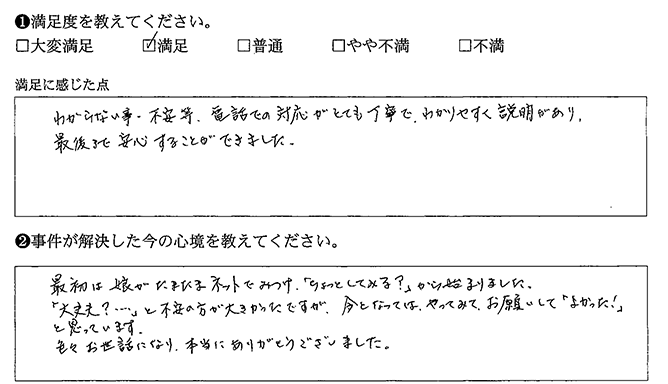 ❶満足度を教えてください。
□大変満足 ☑満足 □普通 □やや不満 □不満
満足に感じた点
わからない事・不安等、電話での対応がとても丁寧で、わかりやすく説明があり、
最後まで安心することができました。
❷事件が解決した今の心境を教えてください。
最初は娘がたまたまネットでみつけ、「ちょっとしてみる?」から始まりました。
「大丈夫?…」と不安の方が大きかったですが、今となっては、やってみて、お願いして「よかった!」
と思っています。
色々お世話になり、本当にありがとうございました。